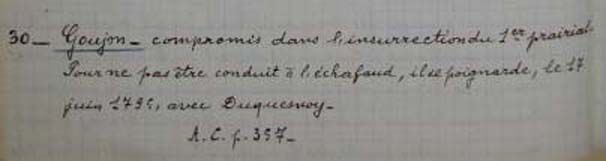 30_ Goujon_ compromis dans l'insurrection du 1er prairial.
Pour ne pas être conduit à l'échafaud, il se poignarde, le 17
juin 1795, avec Duquesnoy_
A.C. p. 397_